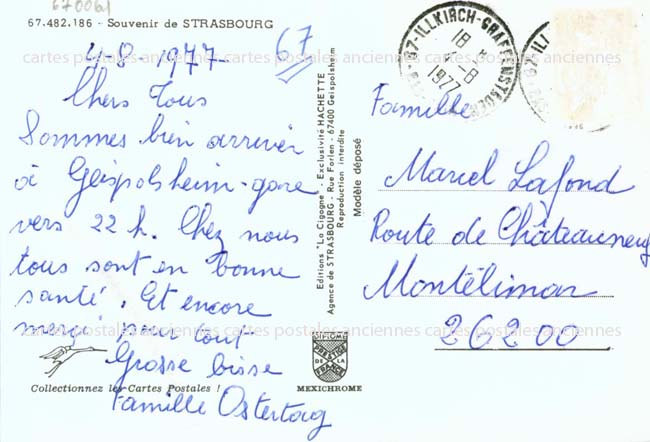 670061
67.482.186 - Souvenir de STRASBOURG
4-8 1977
67
Chers Tous
Sommes bien arrivés
à Geispolsheim-gare
vers 22 h. Chez nous
tous sont en bonne
santé. Et encore
merci pour tout
Grosse bisse
Famille Ostertag
Collectionnez les Cartes Postales !
Editions "La Cigogne" - Exclusivité HACHETTE
Agence de STRASBOURG - Rue Forlen - 67400 Geispolsheim
Reproduction interdite
Modèle déposé
PRESTIGE
DE LA
FRANCE
MEXICHROME
67-ILLKIRCH-GRAFFENSTADEN
18 H
4-8
1977
Famille
Marcel Lafond
Route de Châteauneuf
Montélimar
26200
cartes postales anciennes cartes postales anciennes cartes postales anciennes
cartes postales anciennes cartes postales anciennes cartes postales anciennes